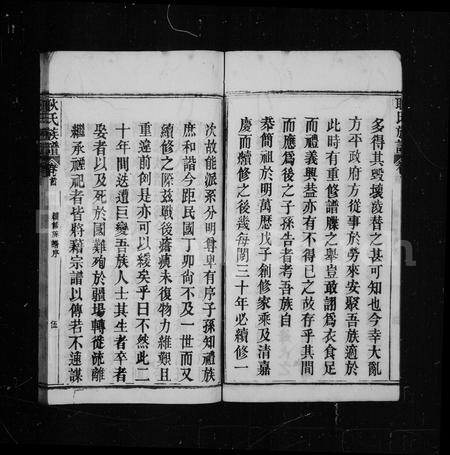 多得其毀壞淩替之甚可知也今幸大亂
方平政府方從事於勞來安聚吾族適於
此時有重修譜牒之舉豈敢謂為衣食足
而禮義興蓋亦有不得已之故存乎其間
而應為後之子孫告者考吾族自
簡祖於明萬歷戊子創修家乘及清嘉
慶而續修之後幾每閱三十年必續修一
次故能派系分明尊卑有序子孫知禮族
庶和諧今距民國丁卯尚不及一世而又
續修之際茲戰後瘡痍未復物力維艱且
重遠前創是亦可以緩矣乎曰不然此二
十年間迭遭巨變吾族人士其生者卒者
娶者以及死於國難殉於疆場轉徙流離
繼承禋祀者皆將藉宗譜以傳若不遠謀
耿氏族譜 卷首 續修族譜序 伍
耿氏族譜